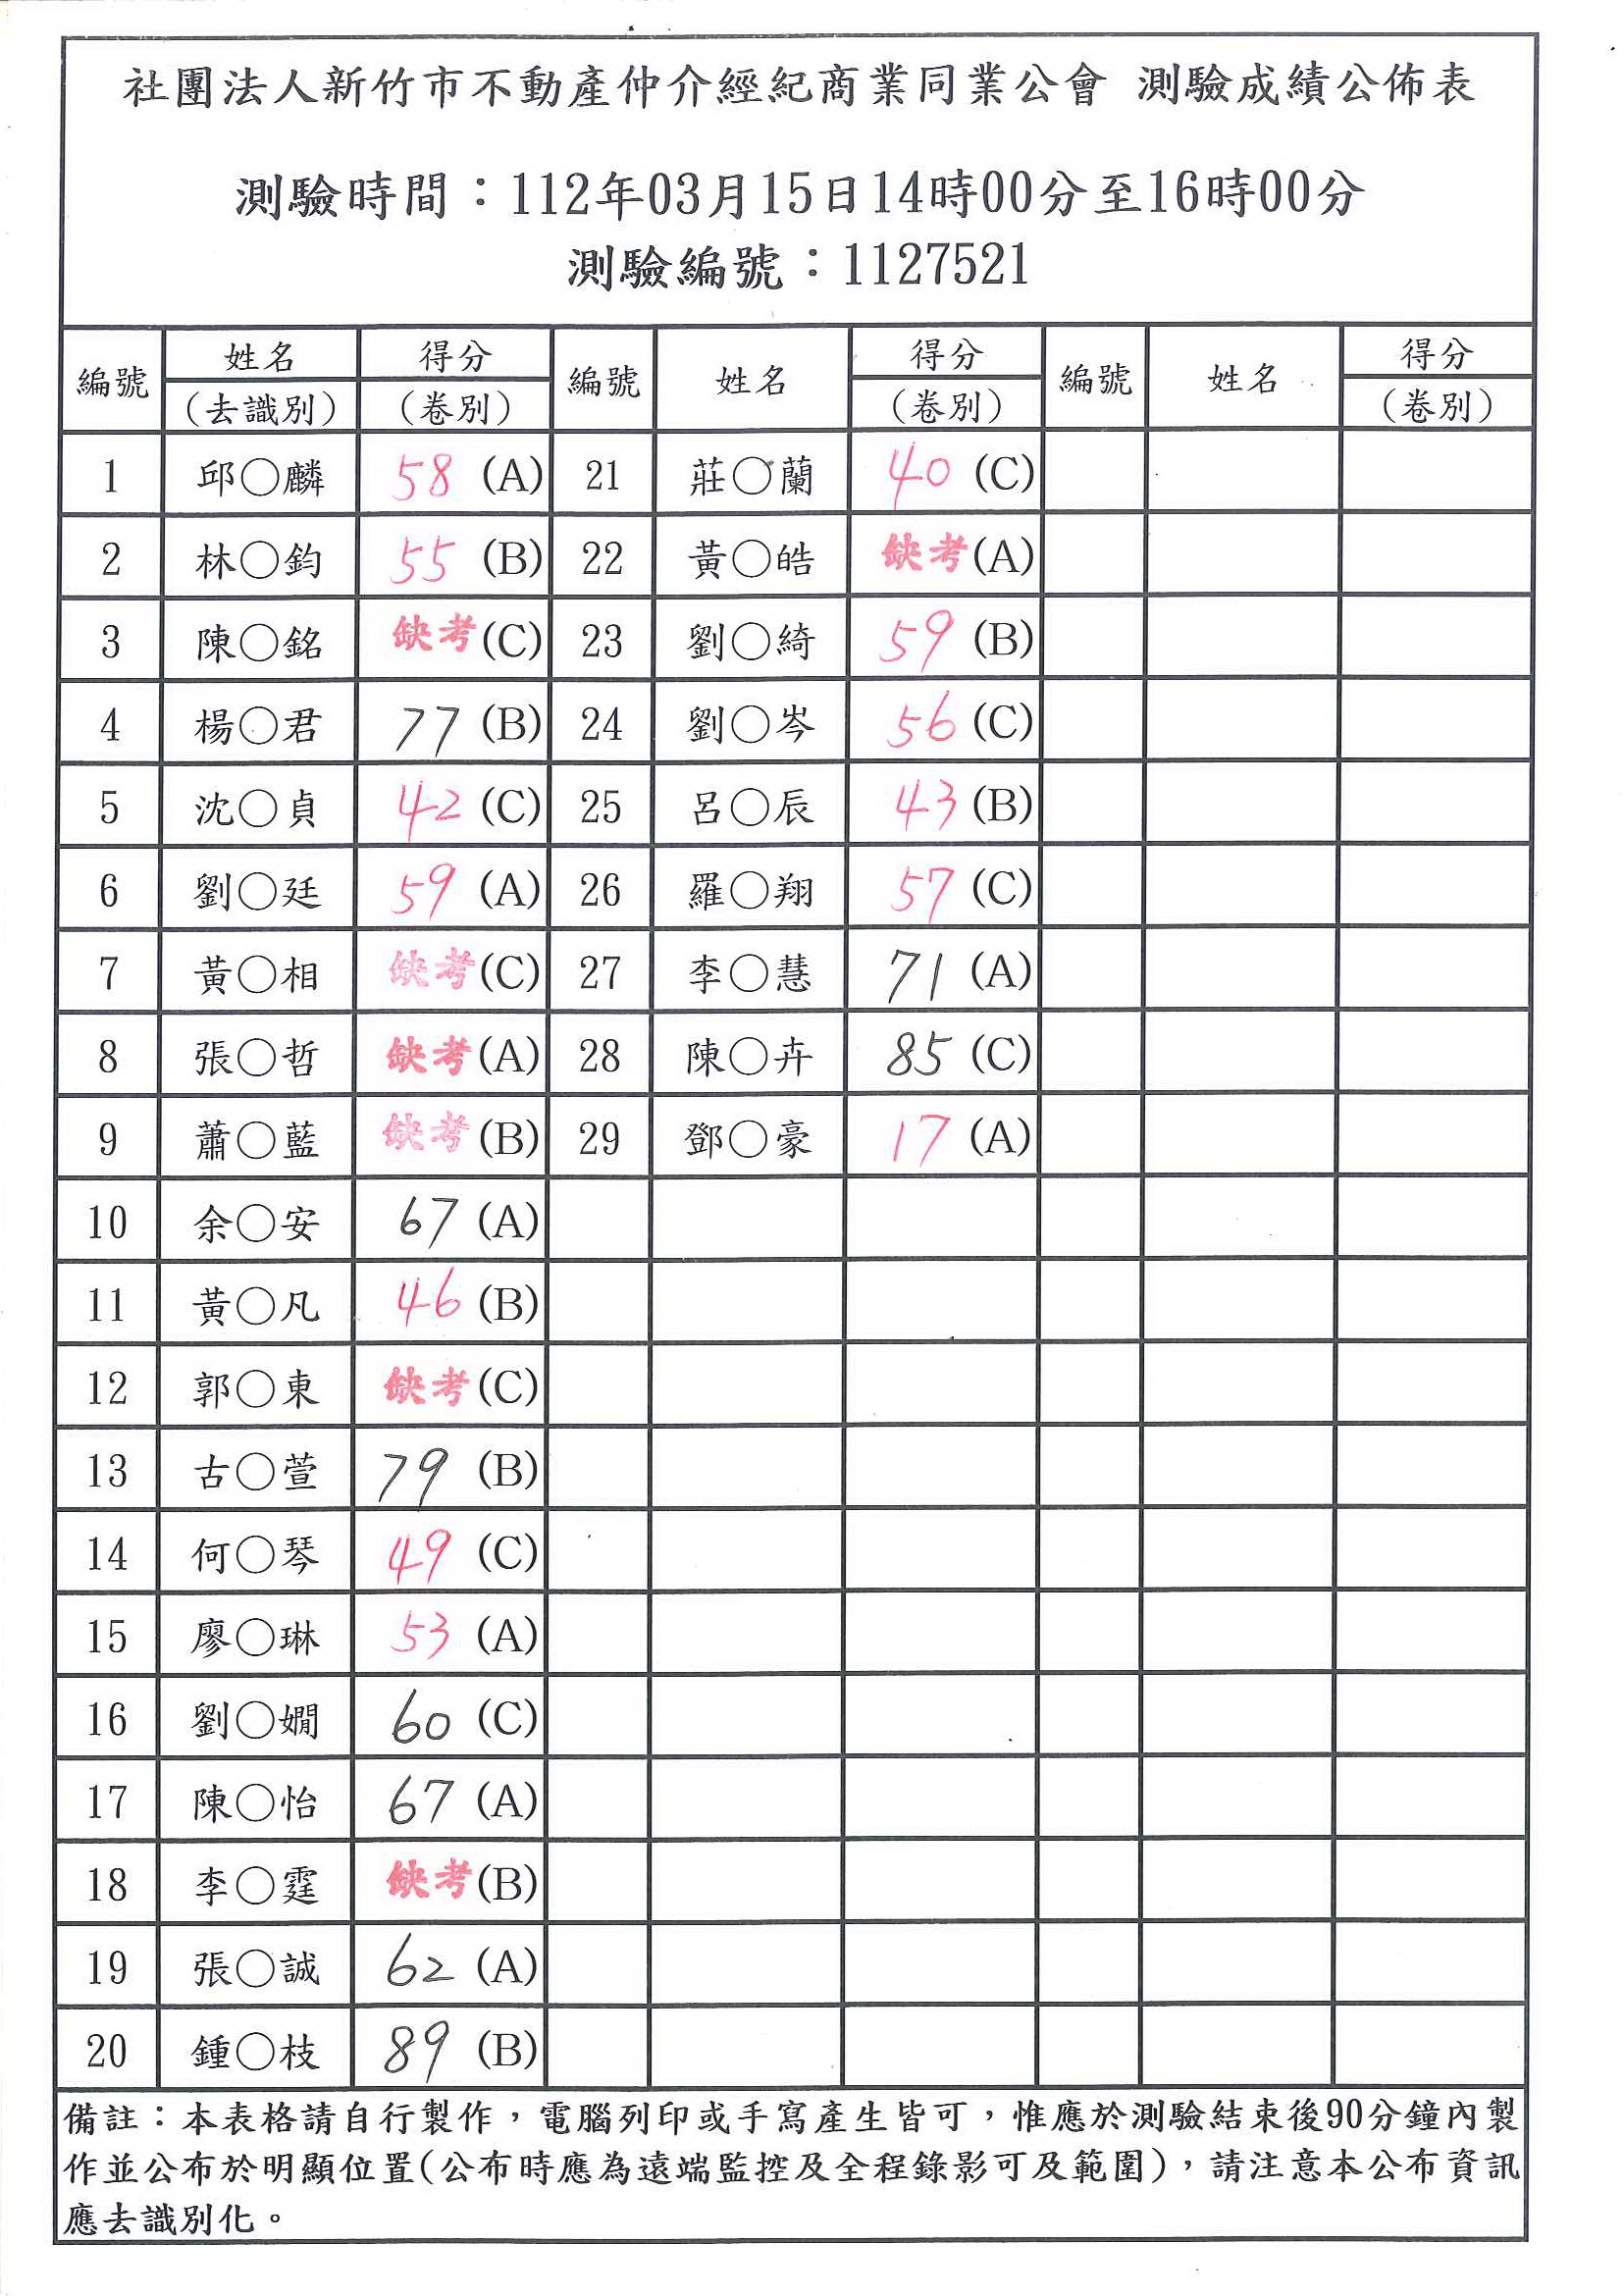 社團法人新竹市不動產仲介經紀商業同業公會 測驗成績公佈表
測驗時間：112年03月15日14時00分至16時00分
測驗編號：1127521
編號 姓名 得分 編號 姓名 得分 編號 姓名 得分
(去識別) (卷別) (卷別) (卷別)
1 邱○麟 58 (A) 21 莊○蘭 40 (C)
2 林○鈞 55 (B) 22 黃○皓 缺考 (A)
3 陳○銘 缺考 (C) 23 劉○綺 59 (B)
4 楊○君 77 (B) 24 劉○岑 56 (C)
5 沈○貞 42 (C) 25 呂○辰 43 (B)
6 劉○廷 59 (A) 26 羅○翔 57 (C)
7 黃○相 缺考 (C) 27 李○慧 71 (A)
8 張○哲 缺考 (A) 28 陳○卉 85 (C)
9 蕭○藍 缺考 (B) 29 鄧○豪 17 (A)
10 余○安 67 (A)
11 黃○凡 46 (B)
12 郭○東 缺考 (C)
13 古○萱 79 (B)
14 何○琴 49 (C)
15 廖○琳 53 (A)
16 劉○嫺 60 (C)
17 陳○怡 67 (A)
18 李○霆 缺考 (B)
19 張○誠 62 (A)
20 鍾○枝 89 (B)
備註：本表格請自行製作，電腦列印或手寫產生皆可，惟應於測驗結束後90分鐘內製
作並公布於明顯位置(公布時應為遠端監控及全程錄影可及範圍)，請注意本公布資訊
應去識別化。